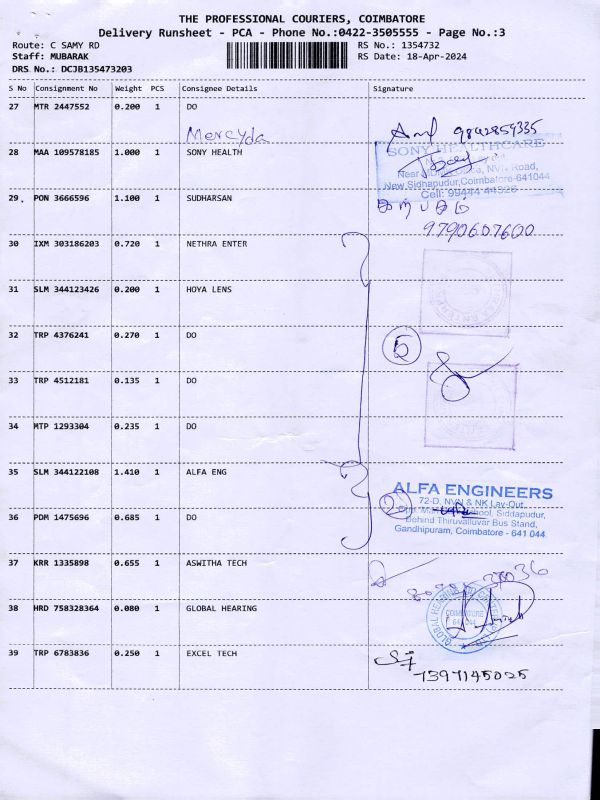 THE PROFESSIONAL COURIERS, COIMBATORE
Delivery Runsheet - PCA - Phone No.:0422-3505555 - Page No.:3
Route: C SAMY RD RS No.: 1354732
Staff: MUBARAK RS Date: 18-Apr-2024
DRS No.: DCJB135473203
S No Consignment No Weight PCS Consignee Details Signature
27 MTR 2447552 0.200 1 DO
Mercyda 9842859335
28 MAA 109578185 1.000 1 SONY HEALTH
SONY HEALTHCARE
Near Road,
New Sidhapudur, Coimbatore-641044
Cell: 99444 44326
29. PON 3666596 1.100 1 SUDHARSAN
9790607600
30 IXM 303186203 0.720 1 NETHRA ENTER
31 SLM 344123426 0.200 1 HOYA LENS
32 TRP 4376241 0.270 1 DO
5
33 TRP 4512181 0.135 1 DO
34 MTP 1293304 0.235 1 DO
35 SLM 344122108 1.410 1 ALFA ENG
ALFA ENGINEERS
72-D, NVN & NK Lay-Out,
Opp. School, Siddapudur,
Behind Thiruvalluvar Bus Stand,
Gandhipuram, Coimbatore - 641 044.
2
36 PDM 1475696 0.685 1 DO
37 KRR 1335898 0.655 1 ASWITHA TECH
38 HRD 758328364 0.080 1 GLOBAL HEARING
COIMBATORE
641 044
39 TRP 6783836 0.250 1 EXCEL TECH
7397145025